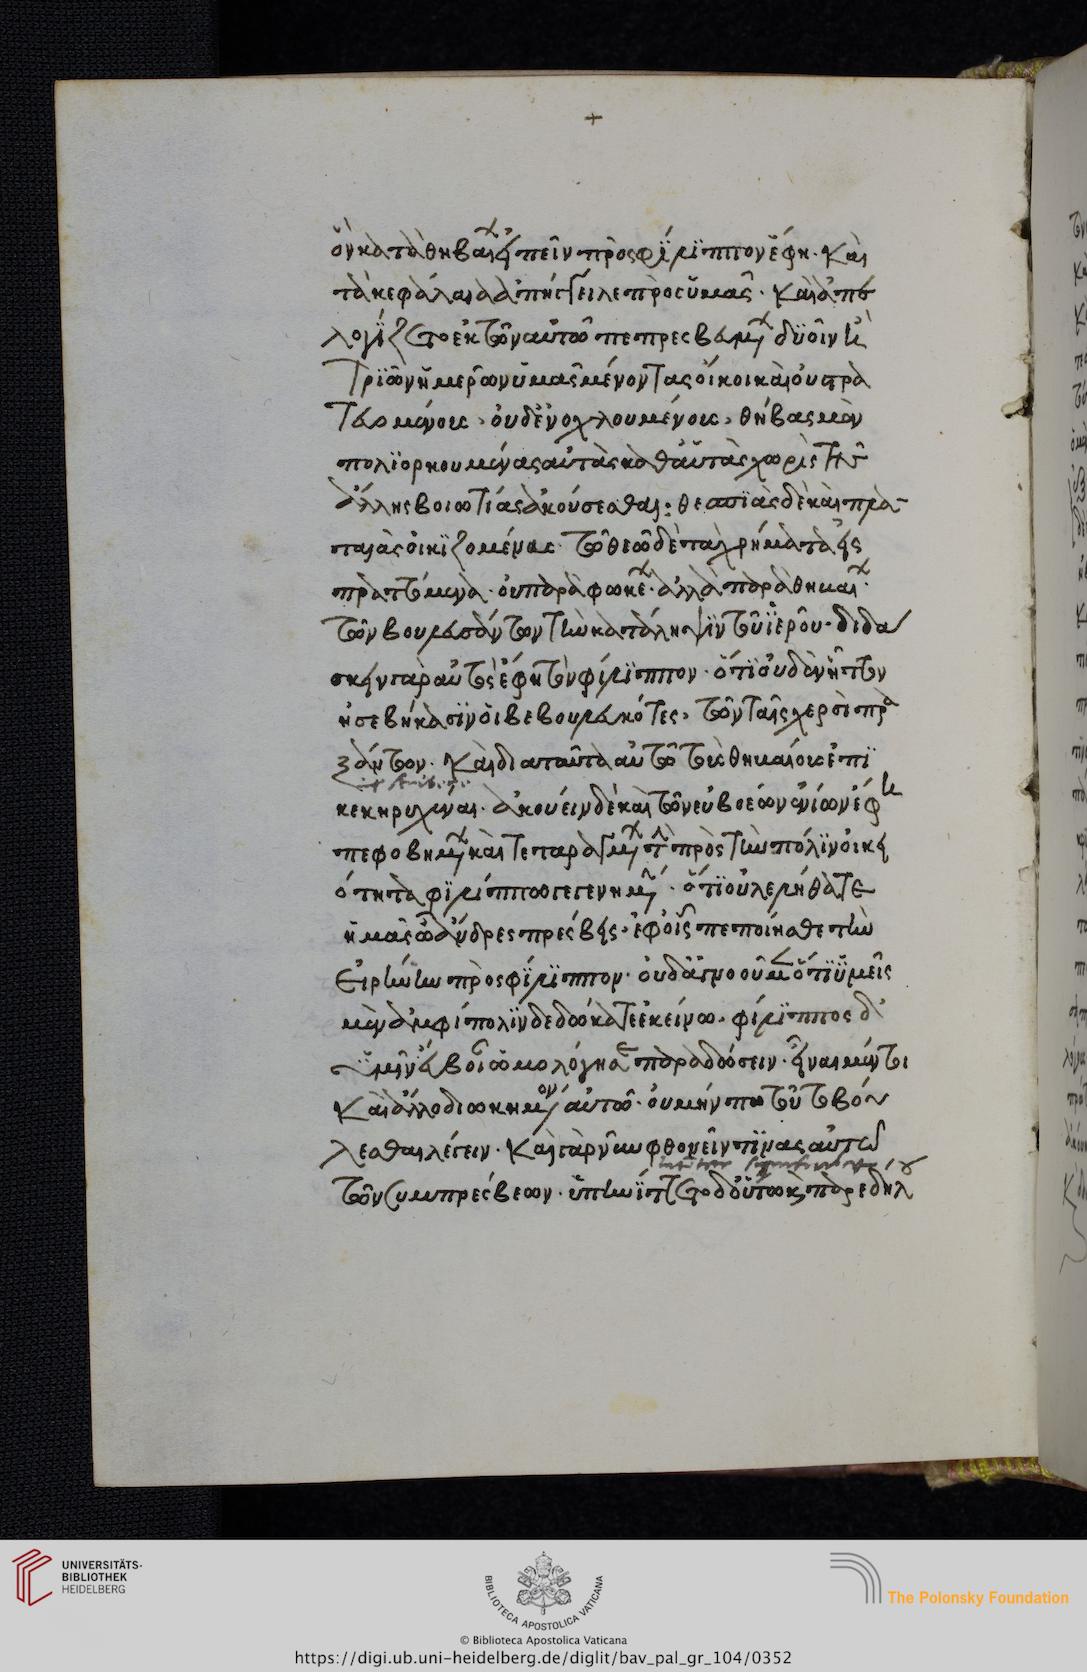 +
ὃν κατὰ θηβαίων εἰπεῖν πρὸς φίλιππον ἔφη. Καὶ
τὰ κεφάλαια ἀπήγγειλε πρὸς ὑμᾶς. Καὶ ἀπὸ
λογίζετο ἐκ τῶν αὐτῷ πεπρεσβευμένων δυοῖν ἢ
τριῶν ἡμερῶν ὑμᾶς μένοντας οἴκοι καὶ οὐ στρα
τευομένοις, οὐδ' ἐνοχλουμένοις, θήβας μὲν
πολιορκουμένας αὐτὰς καθ' αὑτὰς χωρὶς τῆς
ἄλλης βοιωτίας ἀκούσεσθαι: θεσπιὰς δὲ καὶ πλα
ταιὰς οἰκιζομένας. τῷ θεῷ δὲ τὰ χρήματα εἰσ
πραττόμενα. οὐ παρὰ φωκέων. ἀλλὰ παρὰ θηβαίων.
τῶν βουλευσάντων τὴν κατάληψιν τοῦ ἱεροῦ. διδά
σκειν γὰρ αὐτὸς ἔφη τὸν φίλιππον. ὅτι οὐδὲν ἧττον
ἠσεβήκασιν οἱ βεβουλευκότες, τῶν ταῖς χερσὶ πρα
ξάντων. Καὶ διὰ ταῦτα αὐτῷ τοὺς θηβαίους ἐπι
κεκηρυχέναι. ἀκούειν δὲ καὶ τῶν εὐβοέων ἐνίων ἔφη
πεφοβημένων καὶ τεταραγμένων τὴν πρὸς τὴν πόλιν οἰκει
ότητα φιλίππῳ γεγενημένην. ὅτι οὐ λελήθατε
ἡμᾶς ὦ ἄνδρες πρέσβεις. ἐφ' οἷς πεποίησθε τὴν
εἰρήνην πρὸς φίλιππον. οὐδ' ἀγνοοῦμεν ὅτι ὑμεῖς
μὲν ἀμφίπολιν δεδώκατε ἐκείνῳ. φίλιππος δ'
ὑμῖν εὔβοιαν ὡμολόγηκε παραδώσειν. εἶναι μέντοι
Καὶ ἄλλο διῳκημένον αὐτῷ. οὐ μήν πω τοῦτο βού
λεσθαι λέγειν. Καὶ γὰρ νῦν φθονεῖν τινὰς αὐτῷ
τῶν συμπρέσβεων. ὑπῃνίττετο δ' οὕτω καὶ παρεδήλου
UNIVERSITÄTS-
BIBLIOTHEK
HEIDELBERG
BIBLIOTECA APOSTOLICA VATICANA
The Polonsky Foundation
© Biblioteca Apostolica Vaticana
https://digi.ub.uni-heidelberg.de/diglit/bav_pal_gr_104/0352